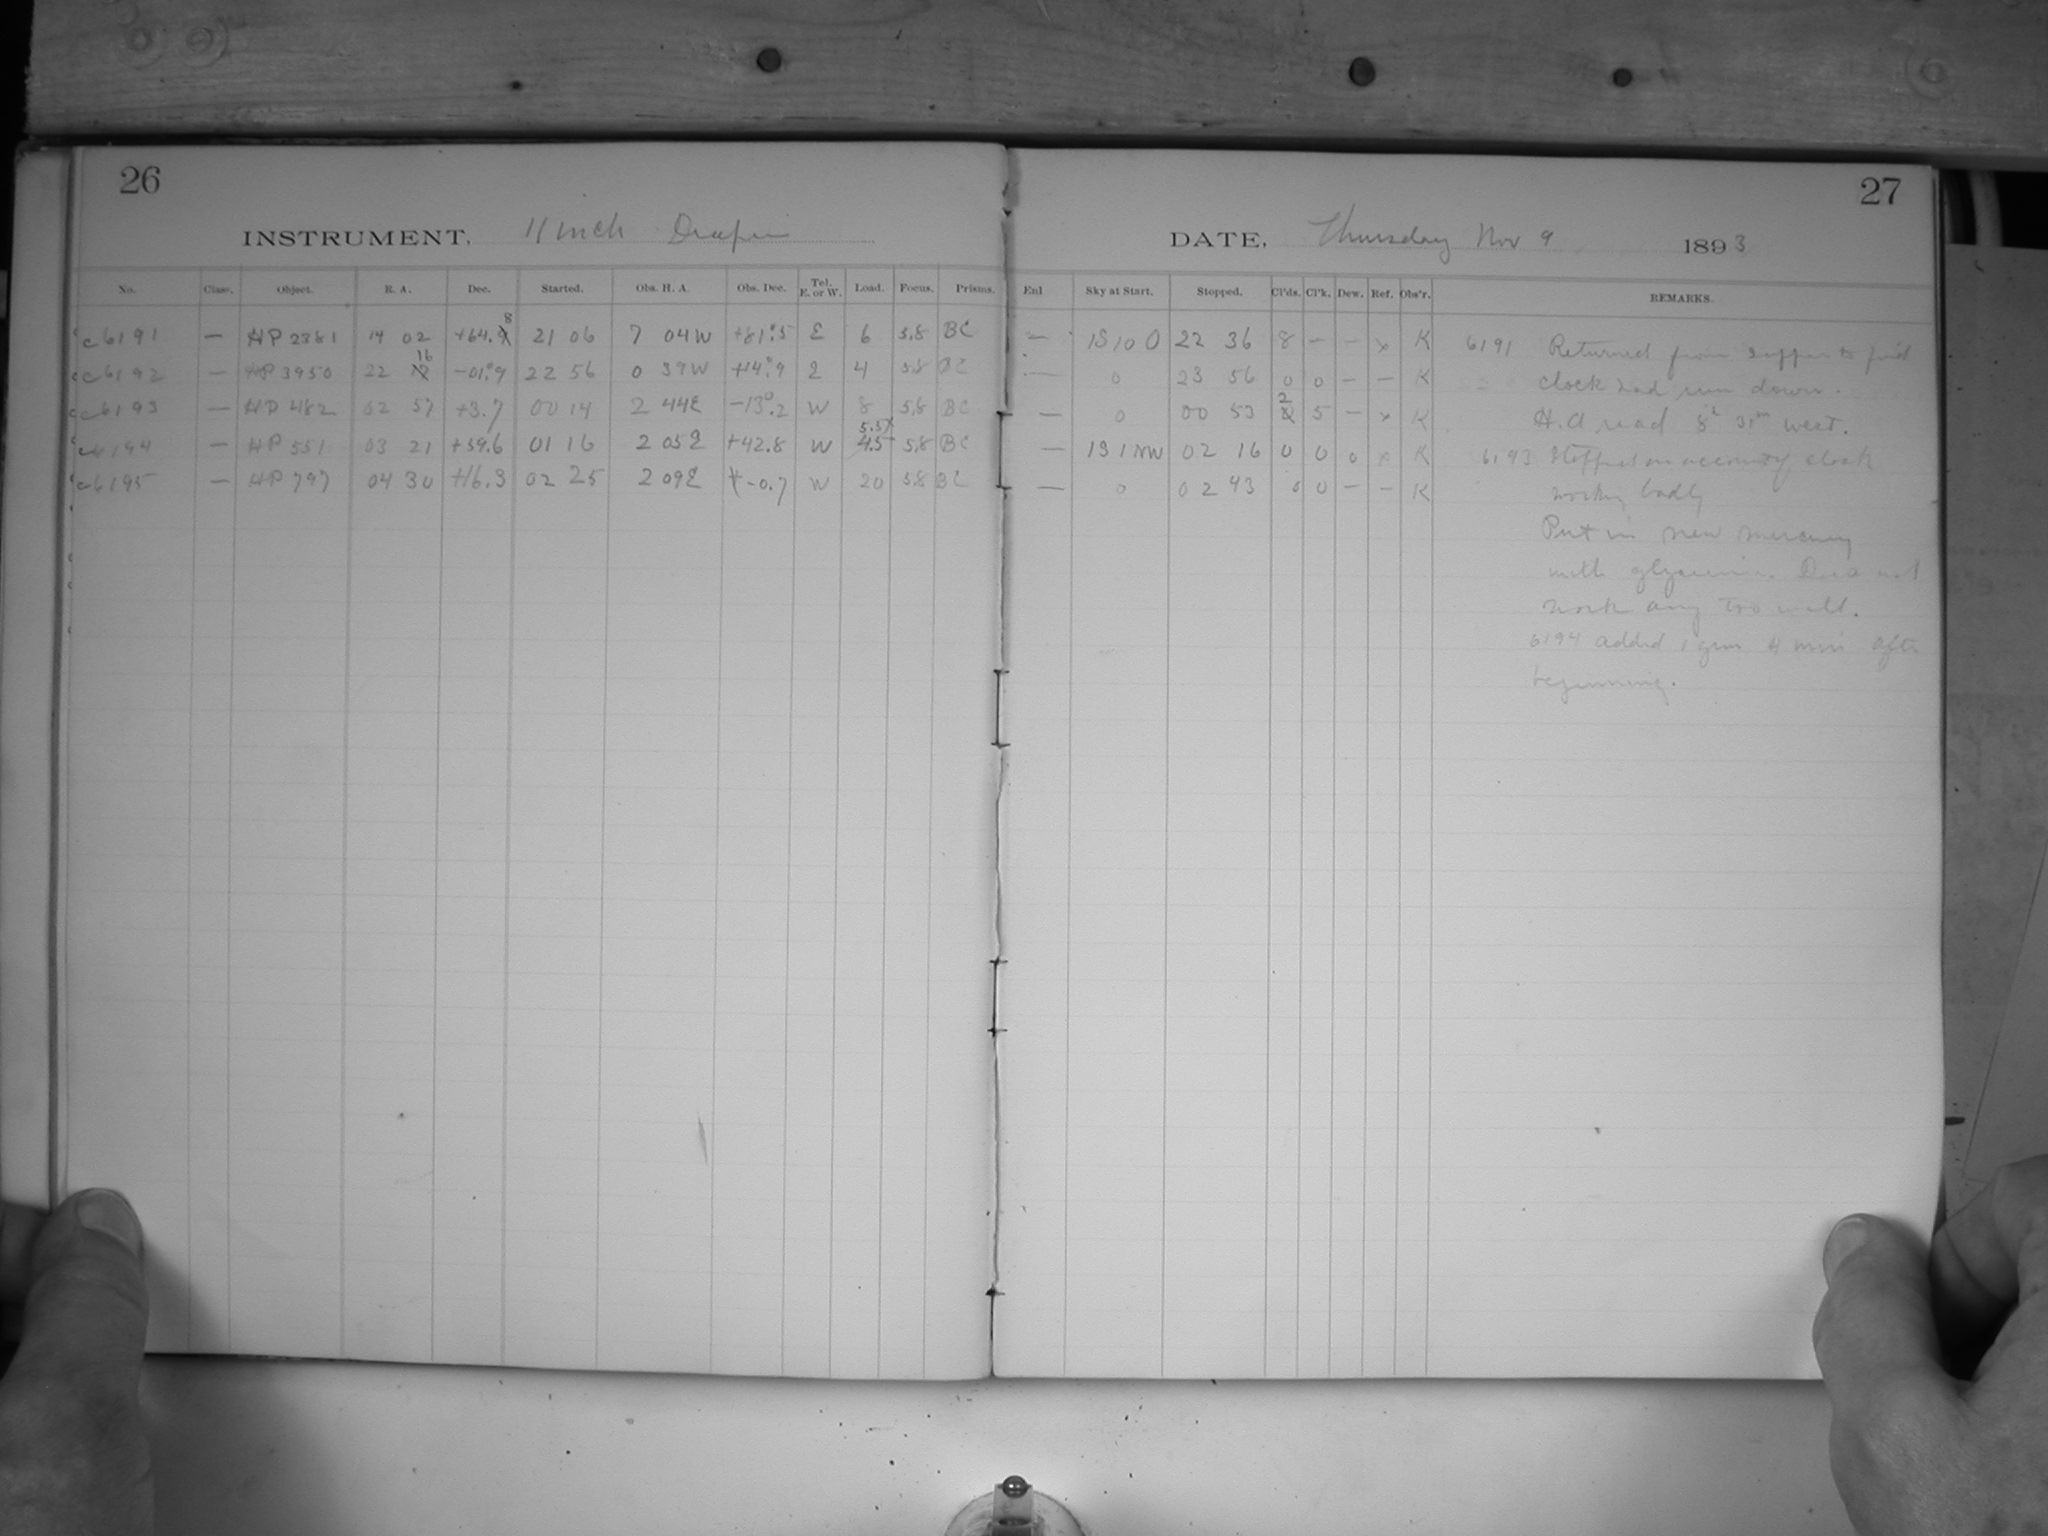 26
INSTRUMENT, 11 inch Draper
No. Class. Object. R. A. Dec. Started. Obs. H. A. Obs. Dec. Tel. E. or W. Load. Focus. Prisms.
c6191 — HP 2381 14 02 +64.8 21 06 7 04W +81°.5 E 6 5.8 BC
c6192 — HP 3950 22 16 -01°.9 22 56 0 39W +14°.9 E 4 5.8 BC
c6193 — HP 482 02 57 +3.7 00 14 2 44E -13°.2 W 8 5.8 BC
c6194 — HP 551 03 21 +59.6 01 16 2 05E +42.8 W 5.5 5.8 BC
c6195 — HP 797 04 30 +16.3 02 25 2 09E -0.7 W 20 5.8 BC
27
DATE, Thursday Nov 9 1893
Enl Sky at Start. Stopped. Cl'ds. Cl'k. Dew. Ref. Obs'r. REMARKS.
— 1S10 0 22 36 8 — — x K
— 0 23 56 0 0 — — K
— 0 00 53 2 5 — x K
— 1S1NW 02 16 0 0 0 x K
— 0 02 43 0 0 — — K
6191 Returned from supper to find
clock had run down.
H.A read 8h 31m west.
6193 Stopped on account of clock
working badly
Put in new mercury
with glycerine. Did not
work any too well.
6194 added 1 gm 4 min after
beginning.